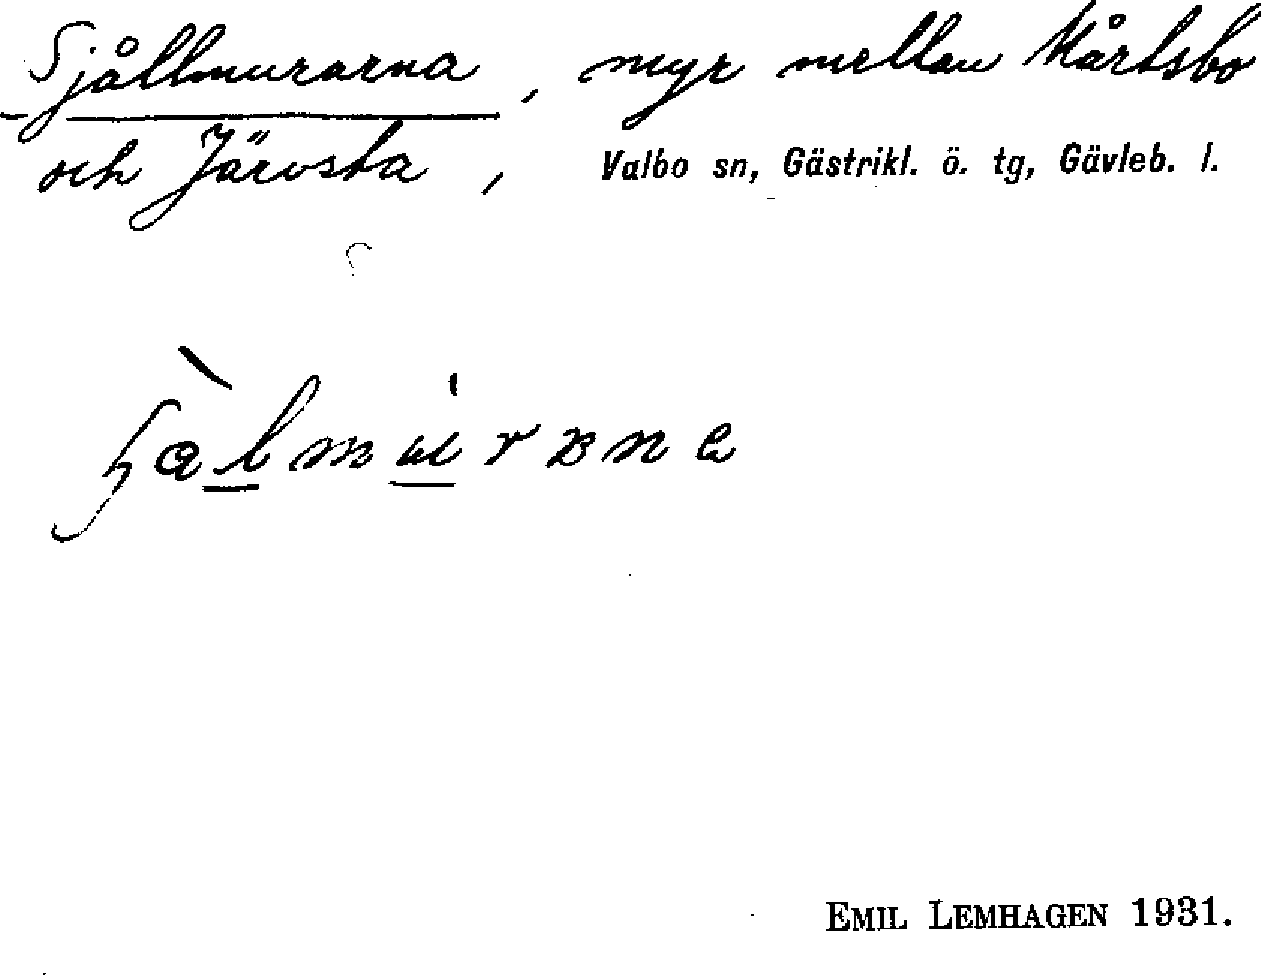 Sjållmurarna, myr mellan Mårtsbo
och Järvsta, Valbo sn, Gästrikl. ö. tg, Gävleb. l.
EMIL LEMHAGEN 1931.